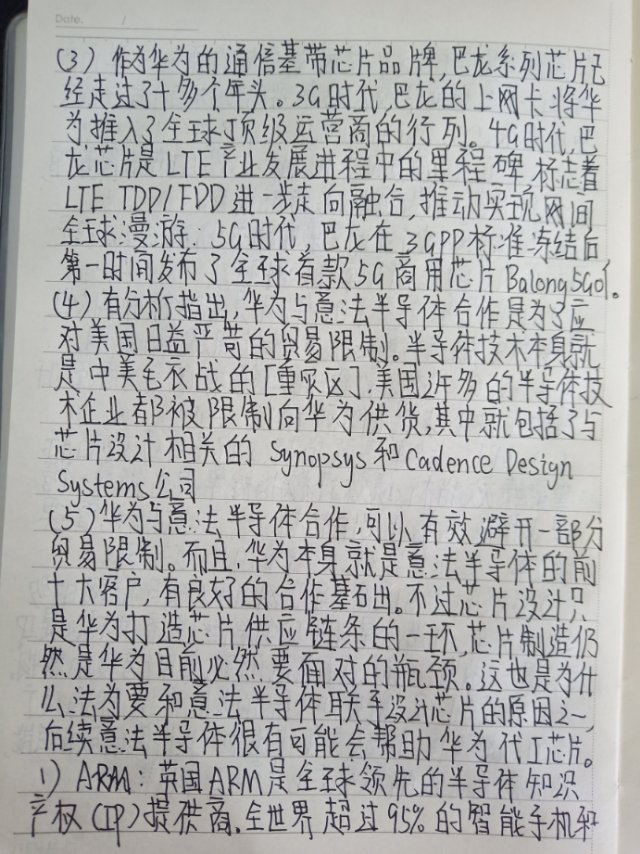 Date. /
(3) 作为华为的通信基带芯片品牌,巴龙系列芯片已
经走过了十多个年头。3G时代,巴龙的上网卡将华
为推入了全球顶级运营商的行列。4G时代,巴
龙芯片是LTE产业发展进程中的里程碑,标志着
LTE TDD/FDD进一步走向融合,推动实现网间
全球漫游。5G时代,巴龙在3GPP标准冻结后
第一时间发布了全球首款5G商用芯片Balong5G01。
(4) 有分析指出,华为与意法半导体合作是为了应
对美国日益严苛的贸易限制。半导体技术本身就
是中美毛衣战的[重灾区],美国许多的半导体技
术企业都被限制向华为供货,其中就包括了与
芯片设计相关的 Synopsys和Cadence Design
Systems公司
(5) 华为与意法半导体合作,可以有效避开一部分
贸易限制。而且,华为本身就是意法半导体的前
十大客户,有良好的合作基础。不过芯片设计只
是华为打造芯片供应链条的一环,芯片制造仍
然是华为目前必然要面对的瓶颈。这也是为什
么法为要和意法半导体联手设计芯片的原因之一,
后续意法半导体很有可能会帮助华为代工芯片。
1) ARM:英国ARM是全球领先的半导体知识
产权(IP)提供商。全世界超过95%的智能手机和